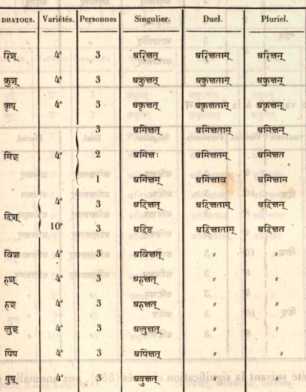 DHATOUS. Variétés. Personnes Singulier. Duel. Pluriel.
रिश् 4e 3 अरिक्षत् अरिक्षताम् अरिक्षन्
क्रुश् 4e 3 अक्रुक्षत् अक्रुक्षताम् अक्रुक्षन्
कृष् 4e 3 अकृक्षत् अकृक्षताम् अकृक्षन्
3 अमिक्षत् अमिक्षताम् अमिक्षन्
मिह् 4e 2 अमिक्षः अमिक्षतम् अमिक्षत
1 अमिक्षम् अमिक्षाव अमिक्षाम
4e 3 अदिक्षत् अदिक्षताम् अदिक्षन्
दिश्
10e 3 अदिष्ट अदिक्षाताम् अदिक्षत
विश 4e 3 अविक्षत् " "
4e 3 " "
4e 3 " "
लुश् 4e 3 अलुक्षत् " "
पिष 4e 3 अपिक्षत् " "
4e 3 " "